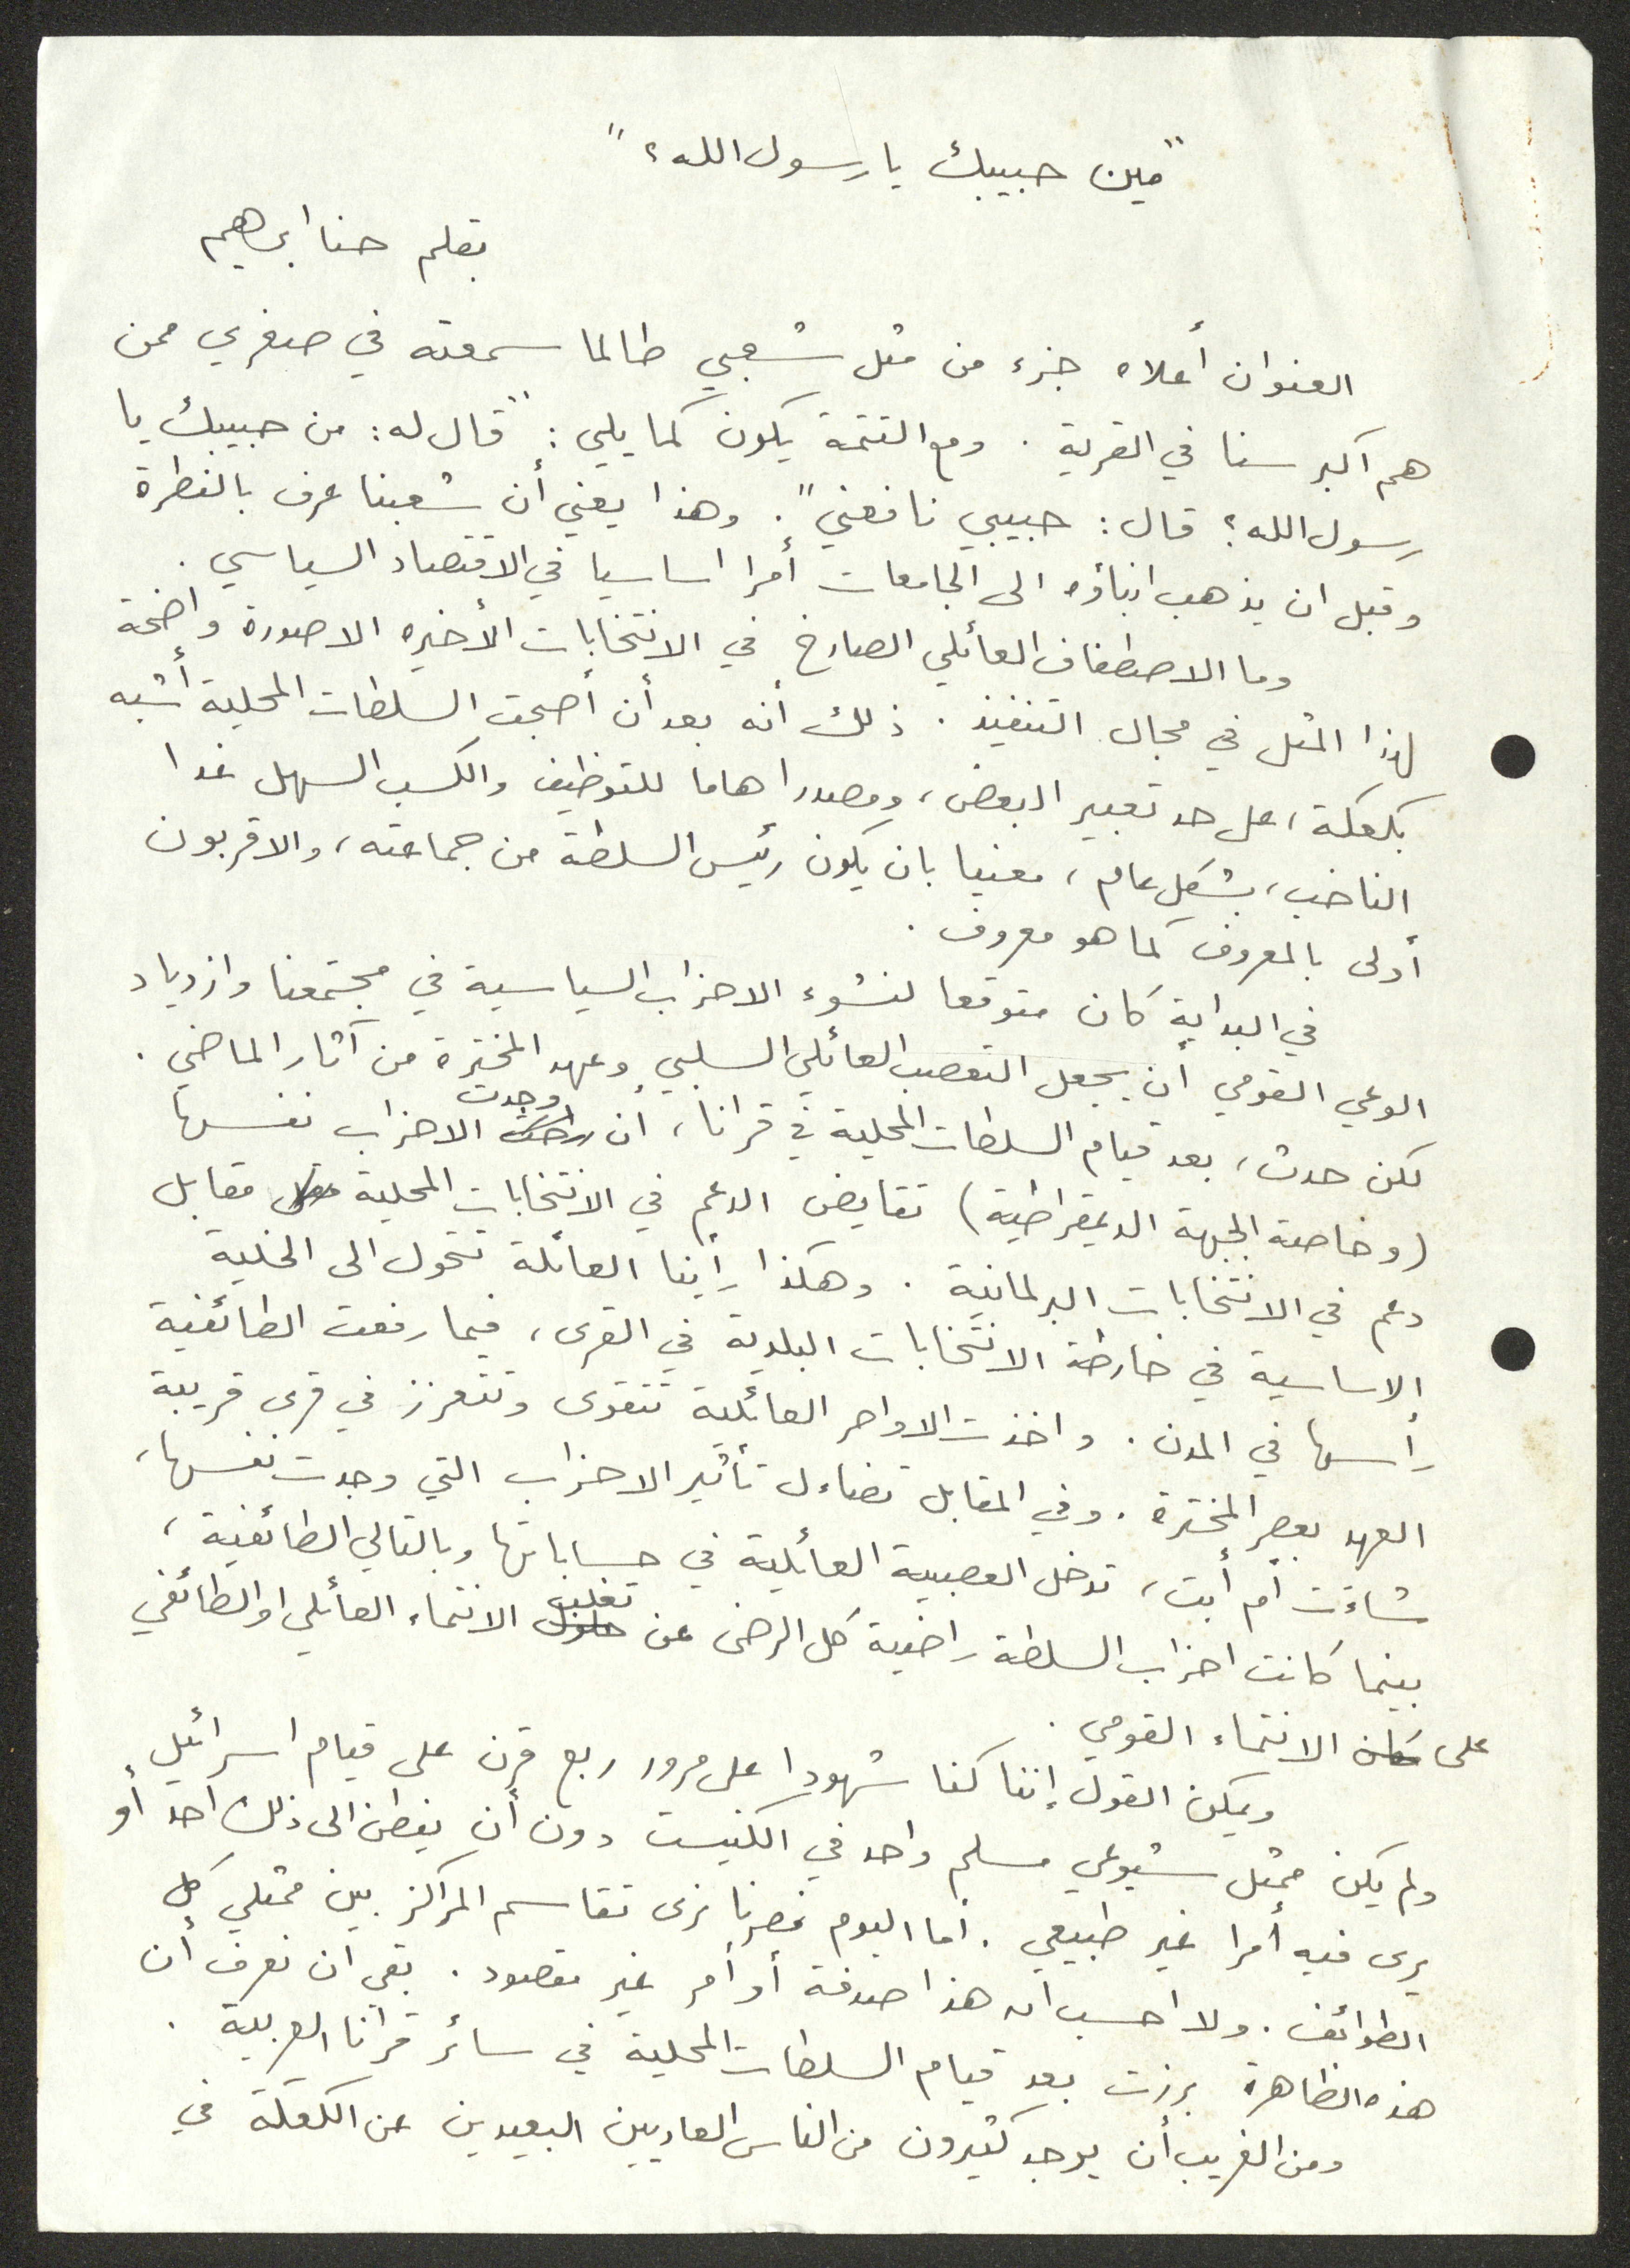 "مين حبيبك يا رسول الله؟"
بقلم حنا ابراهيم
العنوان أعلاه جزء من مثل شعبي طالما سمعته في صغري ممن
هم اكبر سنا في القرية . ومع التتمة يكون كما يلي : "قال له : من حبيبك يا
رسول الله؟ قال : حبيبي نافعني" . وهذا يعني أن شعبنا عرف بالفطرة
وقبل ان يذهب ابناؤه الى الجامعات أمرا اساسيا في الاقتصاد السياسي .
وما الاصطفاف العائلي الصارخ في الانتخابات الأخيره الا صورة واضحة
لهذا المثل في مجال التنفيذ . ذلك أنه بعد أن أصبحت السلطات المحلية أشبه
بكعكة ، على حد تعبير البعض ، ومصدرا هاما للتوظيف والكسب السهل غدا
الناخب ، بشكل عام ، معنيا بان يكون رئيس السلطة من جماعته ، والاقربون
أولى بالمعروف كما هو معروف .
في البداية كان متوقعا لنشوء الاحزاب السياسية في مجتمعنا وازدياد
الوعي القومي أن يجعل التعصب العائلي السلبي وعهد المخترة من آثار الماضي .
لكن حدث ، بعد قيام السلطات المحلية في قرانا ، أن وجدت الاحزاب نفسها
(وخاصة الجبهة الديمقراطية) تقايض الدعم في الانتخابات المحلية مقابل
دعم في الانتخابات البرلمانية . وهكذا رأينا العائلة تتحول الى الخلية
الاساسية في خارطة الانتخابات البلدية في القرى ، فيما رفعت الطائفية
رأسها في المدن . واخذت الاواصر العائلية تتقوى وتتعزز في قرى قريبة
العهد بعصر المخترة . وفي المقابل تضاءل تأثير الاحزاب التي وجدت نفسها ،
شاءت أم أبت ، تدخل العصبية العائلية في حساباتها وبالتالي الطائفية ،
بينما كانت احزاب السلطة راضية كل الرضى عن تغليب الانتماء العائلي او الطائفي
على الانتماء القومي .
ويمكن القول إننا كنا شهودا على مرور ربع قرن على قيام اسرائيل
ولم يكن ممثل شيوعي مسلم واحد في الكنيست دون أن يفطن الى ذلك احد أو
يرى فيه أمرا غير طبيعي . أما اليوم فصرنا نرى تقاسم المراكز بين ممثلي كل
الطوائف . ولا احسب ان هذا صدفة أو أمر غير مقصود . بقي ان نعرف أن
هذه الظاهرة برزت بعد قيام السلطات المحلية في سائر قرانا العربية .
ومن الغريب أن يوجد كثيرون من الناس العاديين البعيدين عن الكعكة في